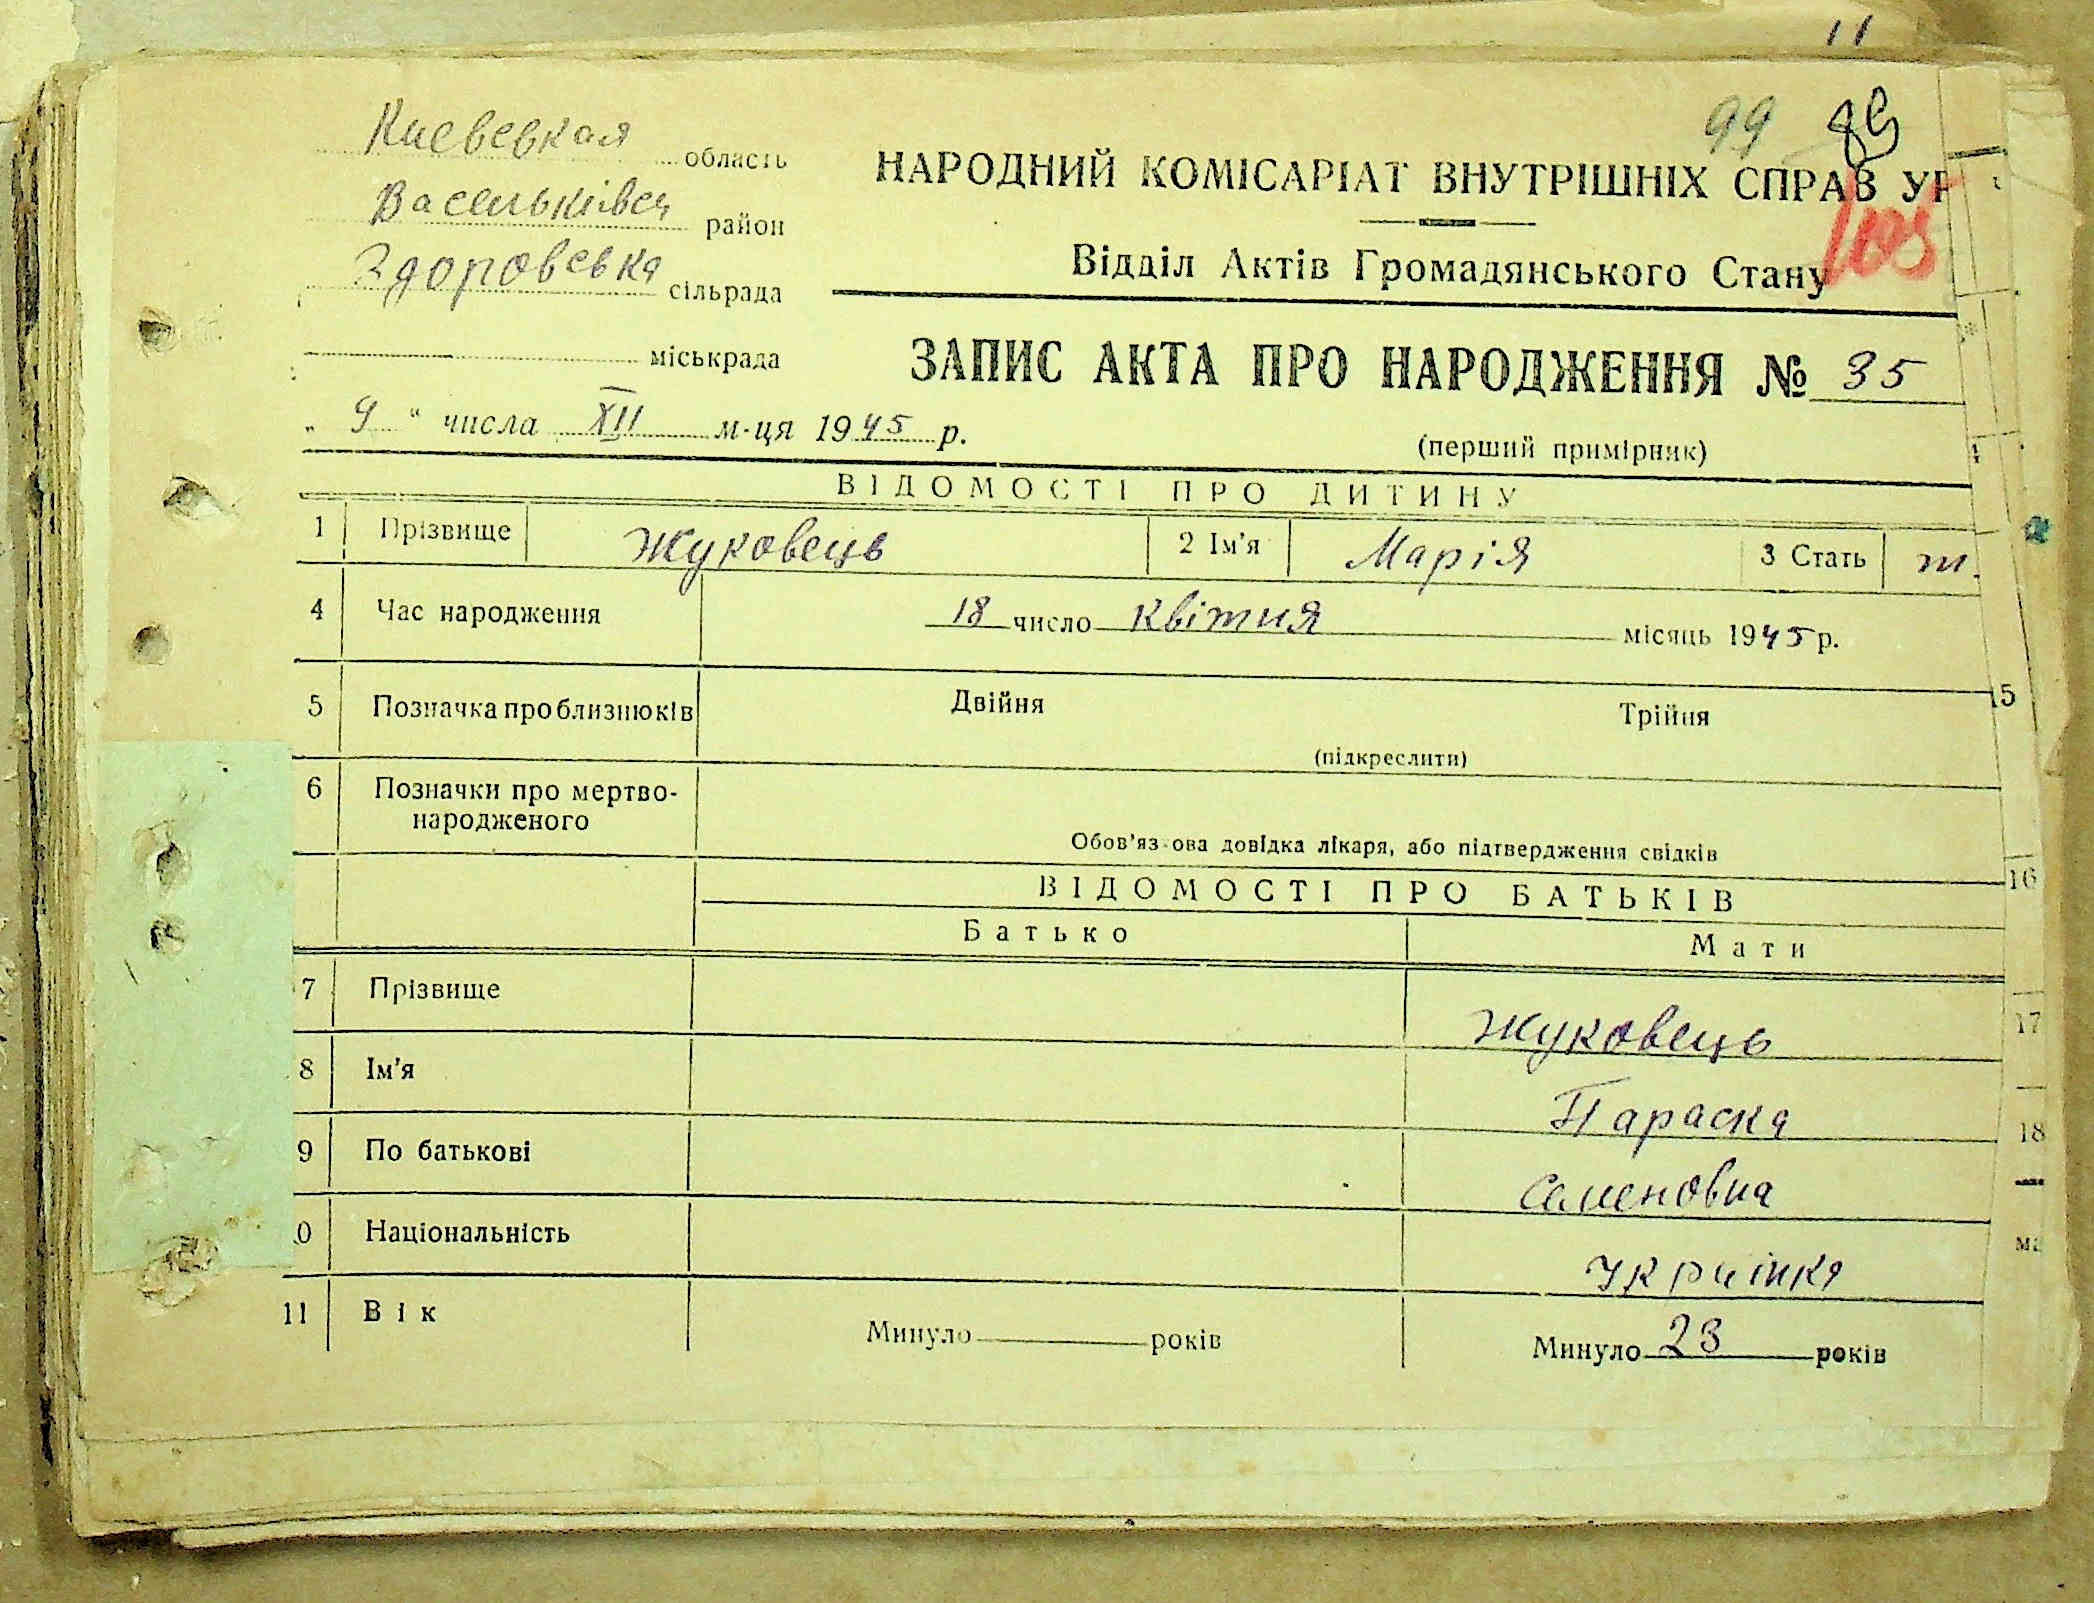 11
99 89
Киевская область
Васильківськ район
Здоровська сільрада
міськрада
НАРОДНИЙ КОМІСАРІАТ ВНУТРІШНІХ СПРАВ УР
Відділ Актів Громадянського Стану
ЗАПИС АКТА ПРО НАРОДЖЕННЯ № 35
„ 9 “ числа XII м-ця 1945 р.
(перший примірник)
ВІДОМОСТІ ПРО ДИТИНУ
1 Прізвище Жуковець 2 Ім'я Марія 3 Стать ж.
4 Час народження 18 число Квітня місяць 1945 р.
5 Позначка про близнюків Двійня Трійня
15
(підкреслити)
6 Позначки про мертво-
народженого
Обов'яз ова довідка лікаря, або підтвердження свідків
16
ВІДОМОСТІ ПРО БАТЬКІВ
Батько Мати
7 Прізвище Жуковець
17
8 Ім'я Параска
18
9 По батькові Семеновна
0 Національність Українка
11 Вік Минуло років Минуло 23 років